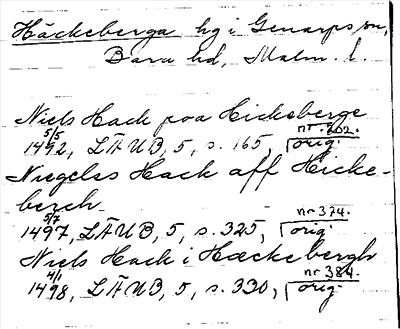 Häckeberga hg i Genarps sn,
Bara hd, Malm. l.
Niels Hack paa Hickeberge
5/5 nr. 202.
1492, LÄUB, 5, s. 165, orig.
Niegels Hack aff Hicke-
berch
5/7 nr 374.
1497, LÄUB, 5, s. 325, orig.
Niels Hack i Hæckebergh
4/1 nr 384.
1498, LÄUB, 5, s. 330, orig.